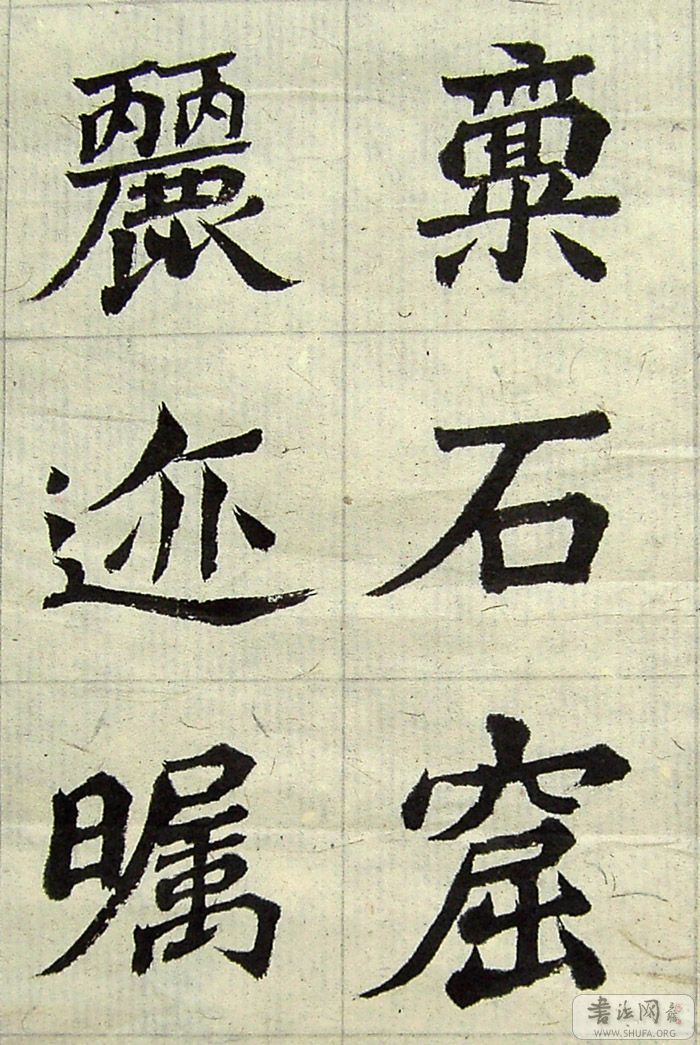 禀石窟
麗迹瞩
書法网
WWW.SHUFA.ORG